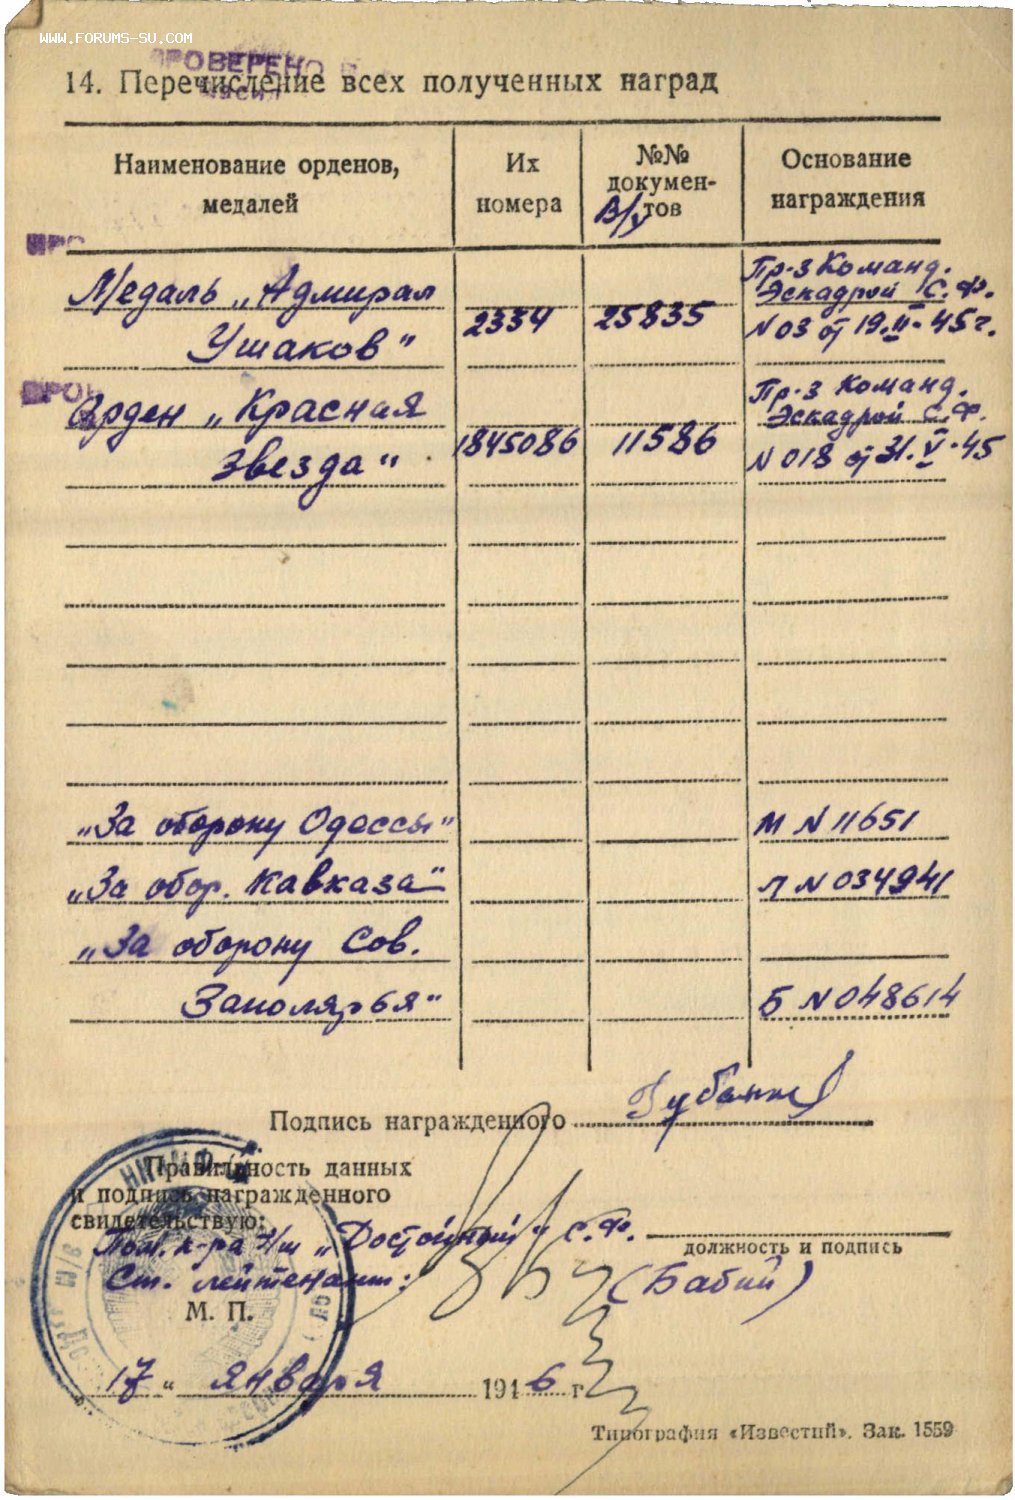 WWW.FORUMS-SU.COM
ПРОВЕРЕНО
14. Перечисление всех полученных наград
Наименование орденов, медалей
Их номера
№№ докумен-тов
В/у
Основание награждения
Медаль „Адмирал
Ушаков"
2334
25835
Пр-з Команд.
Эскадрой С.Ф.
N 03 от 19.II-45г.
Орден „Красная
Звезда"
1845086
11586
Пр-з Команд.
Эскадрой С.Ф.
N 018 от 31.V-45
„За оборону Одессы"
М N 11651
„За обор. Кавказа"
Л N 034941
„За оборону Сов.
Заполярья"
Б N 048614
Подпись награжденного
Правильность данных
и подпись награжденного
свидетельствую:
Пом. к-ра э/м „Достойный" С.Ф.
должность и подпись
Ст. лейтенант:
(Бабий)
М. П.
17 " января 1946 г.
Типография «Известий». Зак. 1559